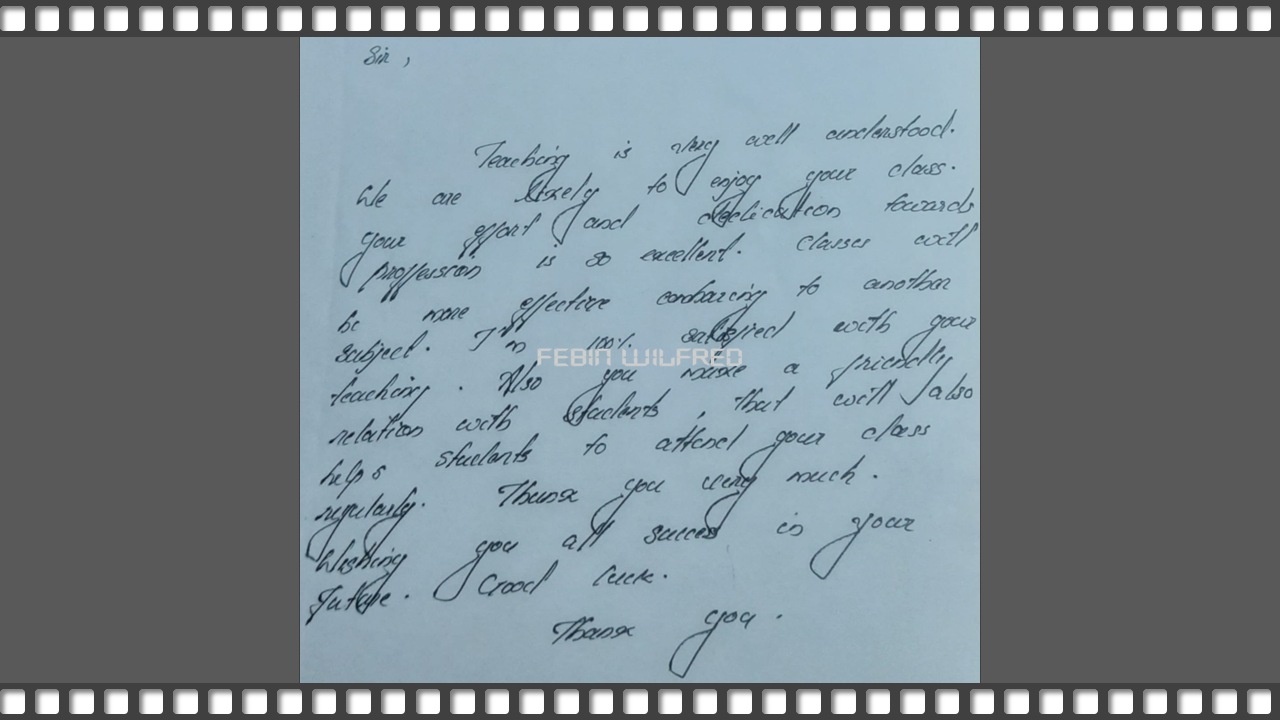 Sir,
Teaching is very well understood.
We are likely to enjoy your class.
your effort and dedication towards
proffession is so excellent. Classes will
be more effective combaring to another
subject. I'm 100% satisfied with your
teaching. Also you make a friendly
relation with students, that will also
helps students to attend your class
regularly. Thank you very much.
Wishing you all success in your
future. Good luck.
Thank you.
FEBIN WILFRED